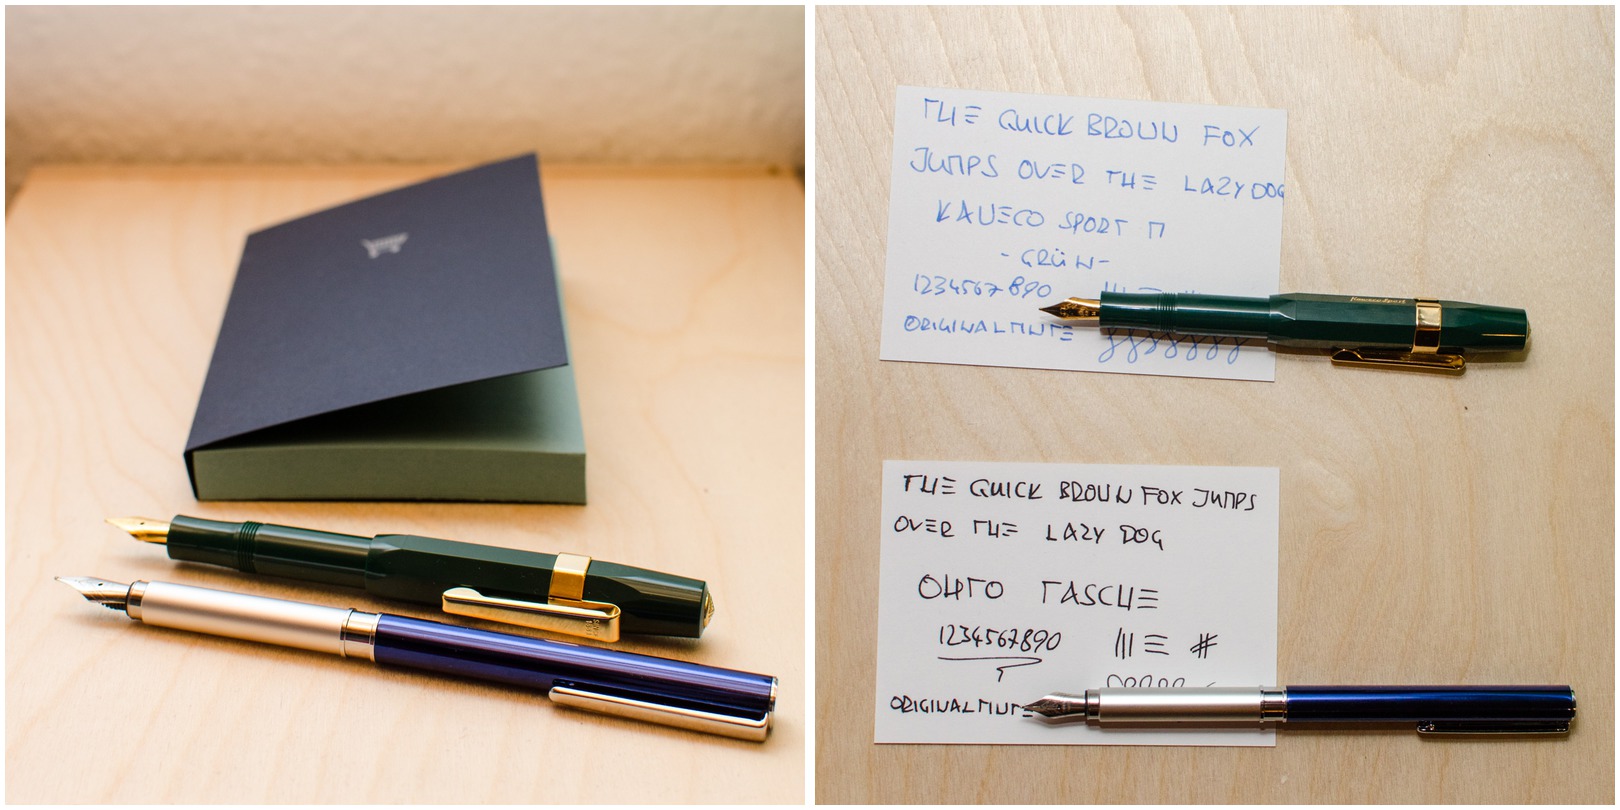 THE QUICK BROWN FOX
JUMPS OVER THE LAZY DOG
KAWECO SPORT M
- GRÜN -
1234567890 ||| #
Kaweco Sport
ORIGINALTINTE
THE QUICK BROWN FOX JUMPS
OVER THE LAZY DOG
OHTO TASCHE
1234567890 ||| ≡ #
ORIGINALTINTE